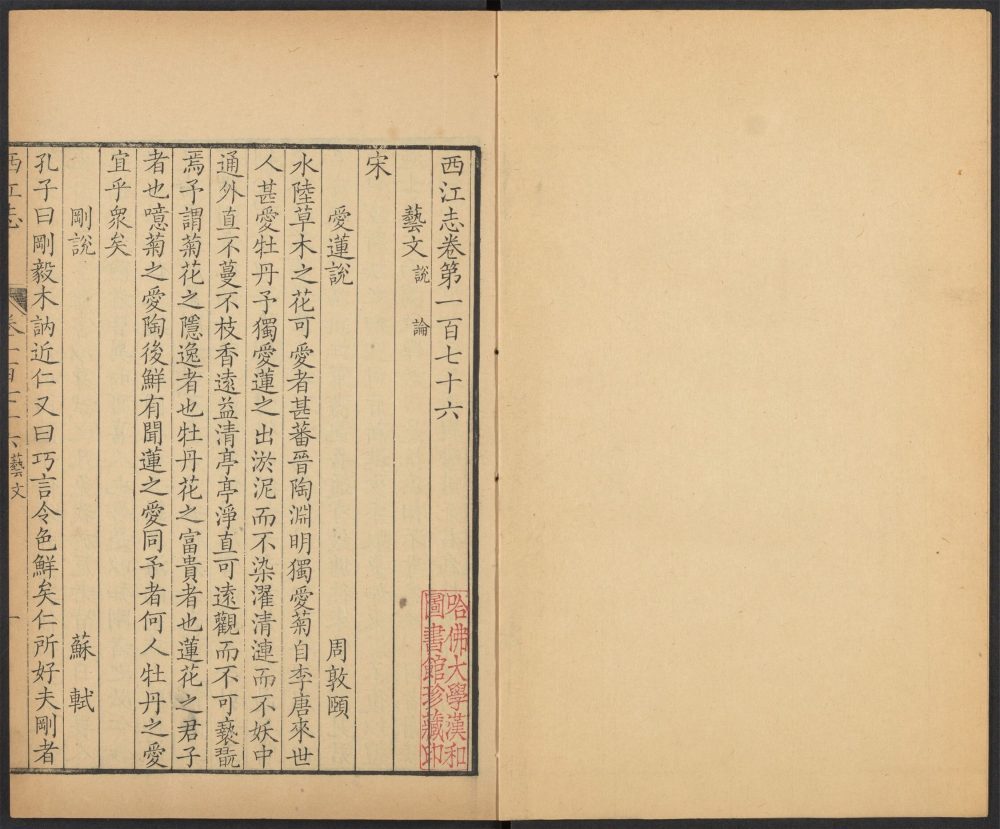 西江志卷第一百七十六
藝文 說 論
宋
愛蓮說 周敦頤
水陸草木之花可愛者甚蕃晉陶淵明獨愛菊自李唐來世
人甚愛牡丹予獨愛蓮之出淤泥而不染濯清漣而不妖中
通外直不蔓不枝香遠益清亭亭淨直可遠觀而不可褻翫
焉予謂菊花之隱逸者也牡丹花之富貴者也蓮花之君子
者也噫菊之愛陶後鮮有聞蓮之愛同予者何人牡丹之愛
宜乎衆矣
剛說 蘇軾
孔子曰剛毅木訥近仁又曰巧言令色鮮矣仁所好夫剛者
西江志 卷一百七十六 藝文 一
哈佛大學漢和
圖書館珍藏印